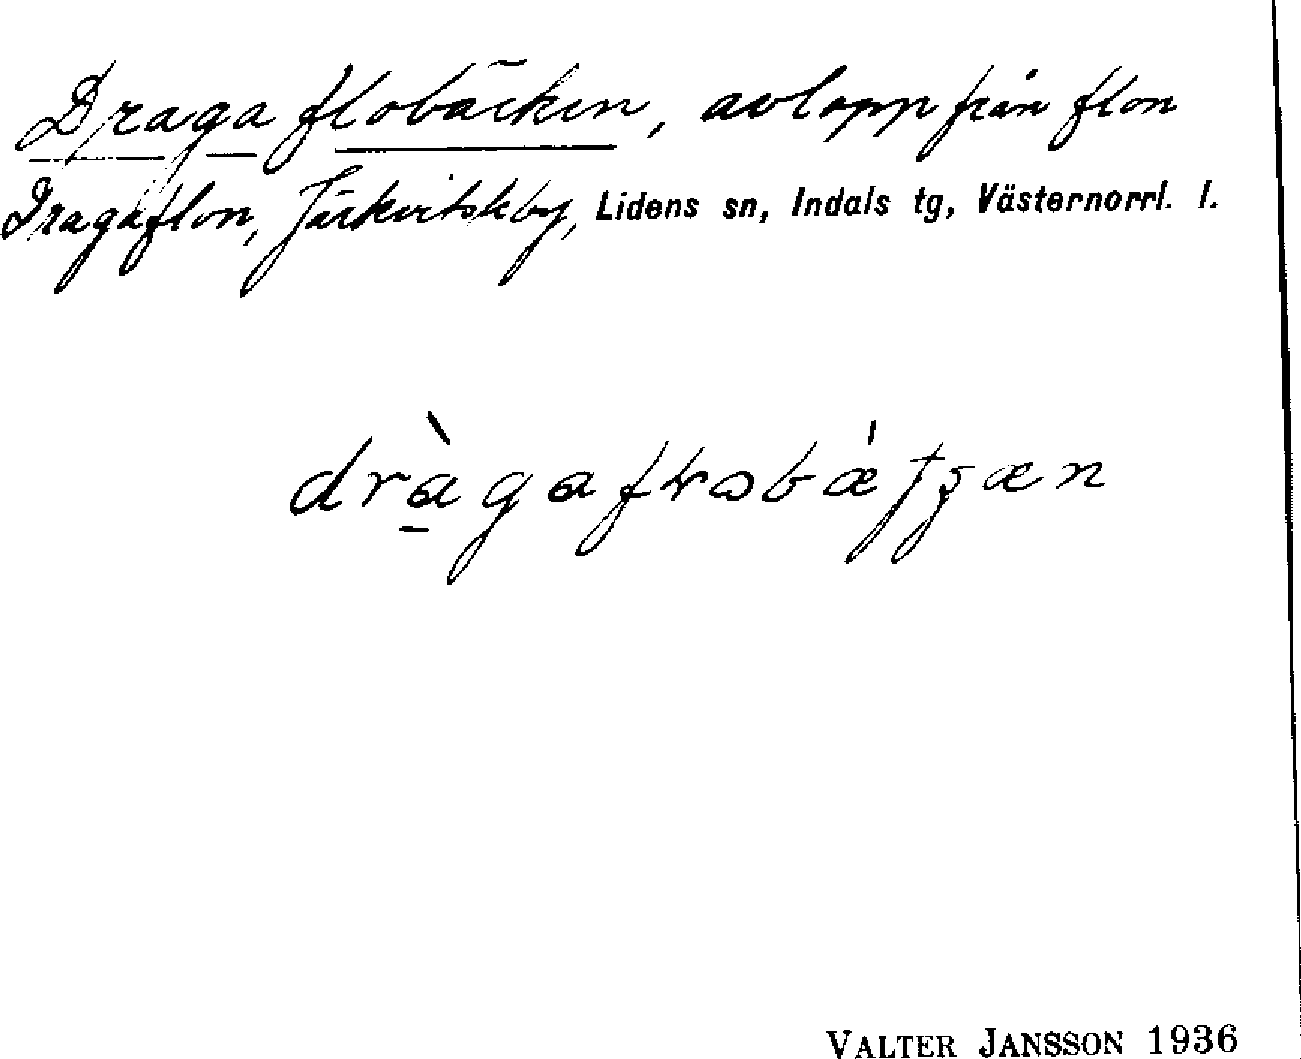 Dragaflobäcken, avlopp från flon
Dragaflon, Järkvitsleby, Lidens sn, Indals tg, Västernorrl. l.
VALTER JANSSON 1936